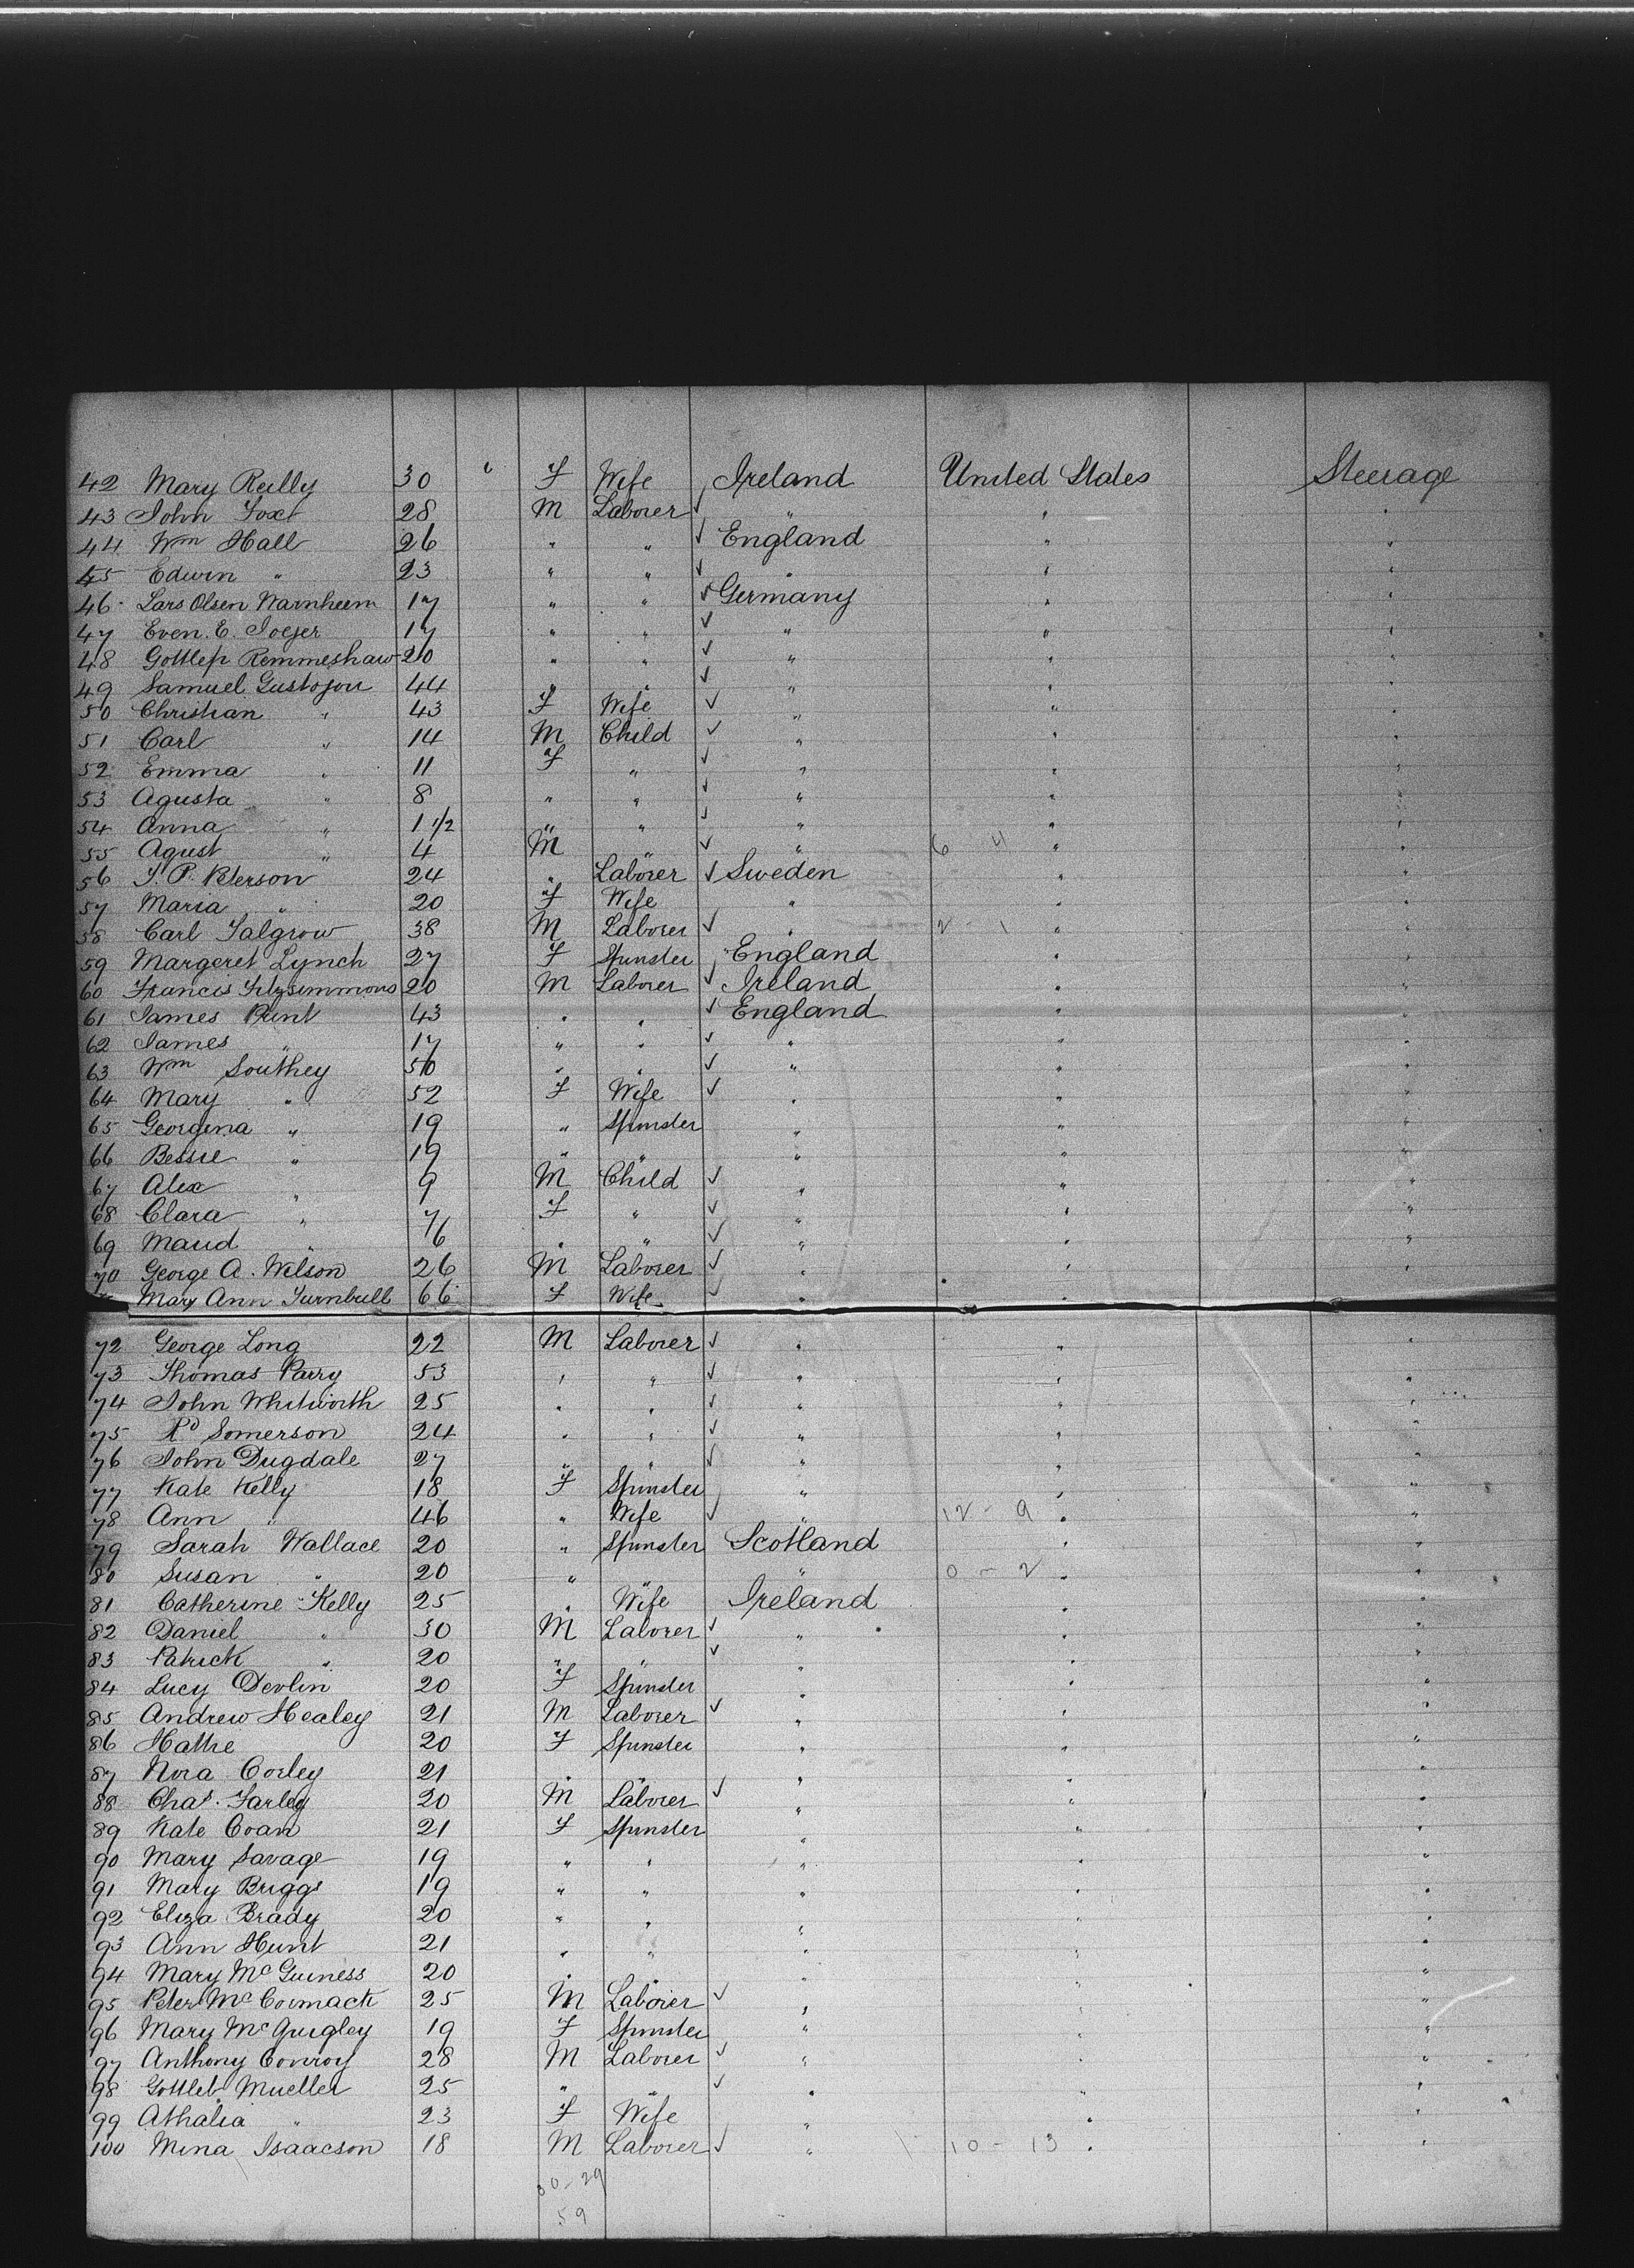 42 Mary Reilly 30 " F Wife Ireland United States Steerage
43 John Fox 28 M Laborer ✓ " " "
44 Wm Hall 26 " " ✓ England " "
45 Edwin " 23 " " ✓ " " "
46 Lars Olsen Warnheem 17 " " ✓ Germany " "
47 Even. E. Joejer 17 " " ✓ " " "
48 Gottlep Remmeshaw 20 " " ✓ " " "
49 Samuel Gustojon 44 " " ✓ " " "
50 Christian " 43 F Wife ✓ " " "
51 Carl " 14 M Child ✓ " " "
52 Emma " 11 F " ✓ " " "
53 Agusta " 8 " " ✓ " " "
54 Anna " 1 1/2 " " ✓ " " "
55 Agust " 4 M " ✓ " 6 4 " "
56 J. P. Peterson 24 " Laborer ✓ Sweden " "
57 Maria " 20 F Wife " " "
58 Carl Talgrow 38 M Laborer ✓ " 2 - 1 " "
59 Margeret Lynch 27 F Spinster England " "
60 Francis Fitzsimmons 20 M Laborer ✓ Ireland " "
61 James Print 43 " " ✓ England " "
62 James " 17 " " ✓ " " "
63 Wm Southey 50 " " ✓ " " "
64 Mary " 52 F Wife ✓ " " "
65 Georgina " 19 " Spinster " " "
66 Bessie " 19 " " " " "
67 Alex " 9 M Child ✓ " " "
68 Clara " 7 F " ✓ " " "
69 Maud " 6 " " ✓ " " "
70 George A. Wilson 26 M Laborer ✓ " " "
Mary Ann Turnbull 66 F Wife ✓ " "
72 George Long 22 M Laborer ✓ " " "
73 Thomas Parry 53 " " ✓ " " "
74 John Whitworth 25 " " ✓ " " "
75 Rd Somerson 24 " " ✓ " " "
76 John Dugdale 27 " " ✓ " " "
77 Kate Kelly 18 F Spinster " " "
78 Ann " 46 " Wife ✓ " 12 - 9 " "
79 Sarah Wallace 20 " Spinster Scotland " "
80 Susan " 20 " " " 0 - 2 " "
81 Catherine Kelly 25 " Wife Ireland " "
82 Daniel " 30 M Laborer ✓ " " "
83 Patrick " 20 " " ✓ " " "
84 Lucy Devlin 20 F Spinster " " "
85 Andrew Healey 21 M Laborer ✓ " " "
86 Hattie 20 F Spinster " " "
87 Nora Corley 21 " " " " "
88 Chas. Farley 20 M Laborer ✓ " " "
89 Kate Coan 21 F Spinster " " "
90 Mary Savage 19 " " " " "
91 Mary Briggs 19 " " " " "
92 Eliza Brady 20 " " " " "
93 Ann Hunt 21 " " " " "
94 Mary McGuiness 20 " " " " "
95 Peter McCormack 25 M Laborer ✓ " " "
96 Mary McQuigley 19 F Spinster " " "
97 Anthony Conroy 28 M Laborer ✓ " " "
98 Gottleb Mueller 25 " " ✓ " " "
99 Athalia " 23 F Wife " " "
100 Mina Isaacson 18 M Laborer ✓ " 10 - 13 " "
30-29
59